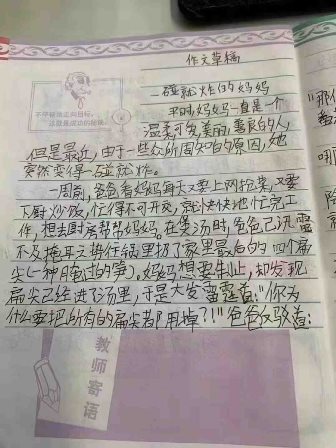 作文草稿
一碰就炸的妈妈
不停顿地走向目标,
这就是成功的秘诀。
平时,妈妈一直是个
温柔可爱,美丽善良的人,
但是最近,由于一些众所周知的原因,她
突然变得一碰就炸。
一周前,爸爸看妈妈每天又要上网抢菜,又要
下厨炒饭,忙得不可开交,就快快地忙完工
作,想去厨房帮帮妈妈。在煲汤时,爸爸已迅雷
不及掩耳之势往锅里扔了家里最后的四个扁
尖(一种腌过的笋)。妈妈想要制止,却发现
扁尖已经进了汤里,于是大发雷霆道:"你为
什么要把所有的扁尖都用掉?!"爸爸反驳道:
教师寄语